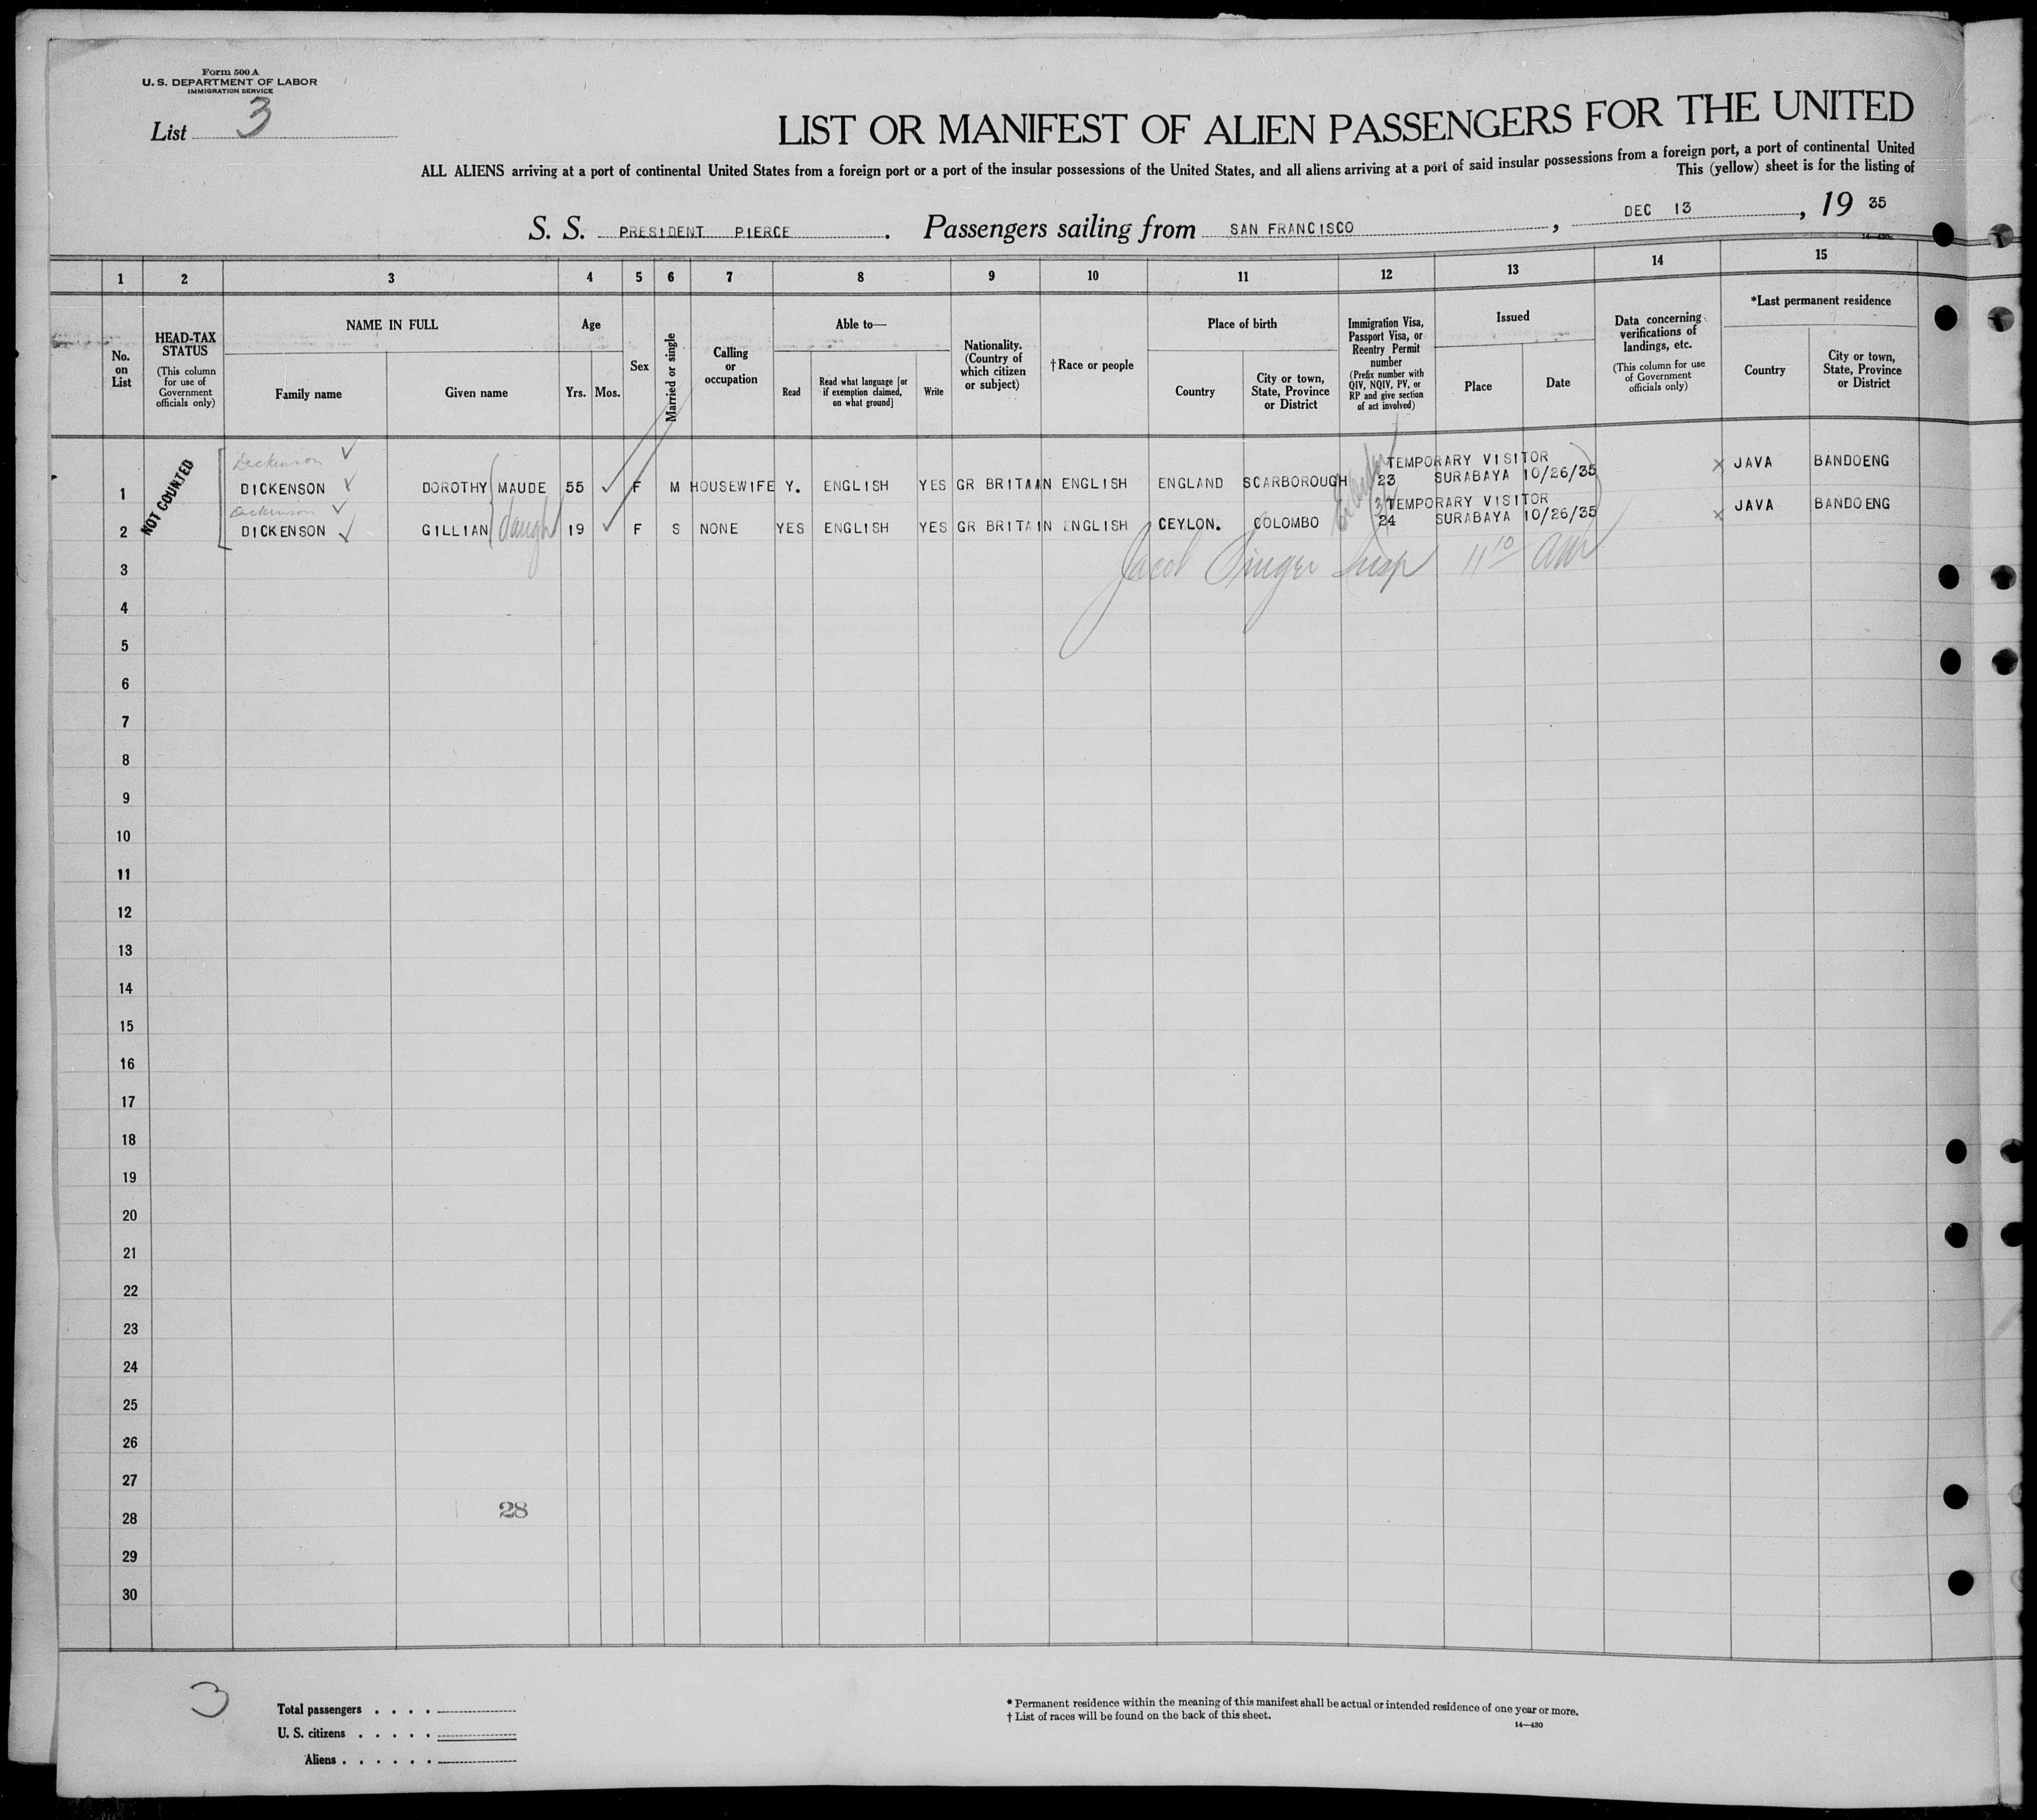 Form 500 A
U. S. DEPARTMENT OF LABOR
IMMIGRATION SERVICE
List 3
LIST OR MANIFEST OF ALIEN PASSENGERS FOR THE UNITED
ALL ALIENS arriving at a port of continental United States from a foreign port or a port of the insular possessions of the United States, and all aliens arriving at a port of said insular possessions from a foreign port, a port of continental United
This (yellow) sheet is for the listing of
S. S. PRESIDENT PIERCE . Passengers sailing from SAN FRANCISCO , DEC 13 , 19 35
14—430
1 2 3 4 5 6 7 8 9 10 11 12 13 14 15
No. on List
HEAD-TAX STATUS
(This column for use of Government officials only)
NAME IN FULL
Family name
Given name
Age
Yrs. Mos.
Sex
Married or single
Calling or occupation
Able to—
Read
Read what language [or if exemption claimed, on what ground]
Write
Nationality. (Country of which citizen or subject)
†Race or people
Place of birth
Country
City or town, State, Province or District
Immigration Visa, Passport Visa, or Reentry Permit number
(Prefix number with QIV, NQIV, PV, or RP and give section of act involved)
Issued
Place
Date
Data concerning verifications of landings, etc.
(This column for use of Government officials only)
*Last permanent residence
Country
City or town, State, Province or District
NOT COUNTED
Dickinson ✓
TEMPORARY VISITOR
1 DICKENSON DOROTHY MAUDE 55 ✓ F M HOUSEWIFE Y. ENGLISH YES GR BRITAIN ENGLISH ENGLAND SCARBOROUGH 23 SURABAYA 10/26/35 x JAVA BANDOENG
Dickinson ✓
3(2) TEMPORARY VISITOR
2 DICKENSON ✓ GILLIAN daught 19 ✓ F S NONE YES ENGLISH YES GR BRITAIN ENGLISH CEYLON. COLOMBO 24 SURABAYA 10/26/35 x JAVA BANDOENG
Jacob Singer Insp 11 10 AM
3
4
5
6
7
8
9
10
11
12
13
14
15
16
17
18
19
20
21
22
23
24
25
26
27
28
28
29
30
3
Total passengers . . . .
U. S. citizens . . . . .
Aliens . . . . . .
* Permanent residence within the meaning of this manifest shall be actual or intended residence of one year or more.
† List of races will be found on the back of this sheet.
14—430